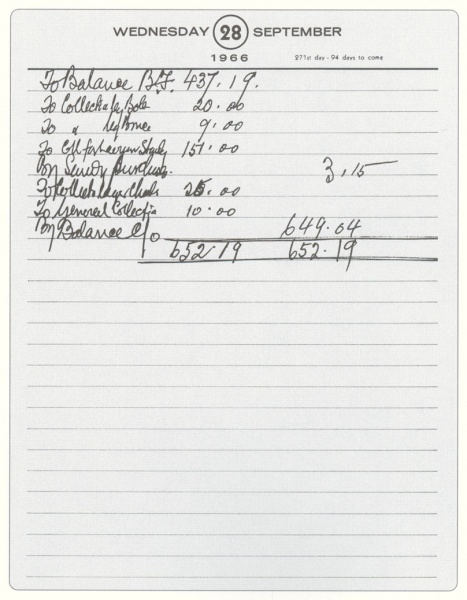 WEDNESDAY 28 SEPTEMBER
1966
271st day - 94 days to come
To Balance B.F. 437.19.
To Collected by Bola 20.00
To " by 9.00
To Coll for 151.00
By Sundry 3.15
To Collected 25.00
To General Collection 10.00
By Balance C/o 649.04
652.19 652.19